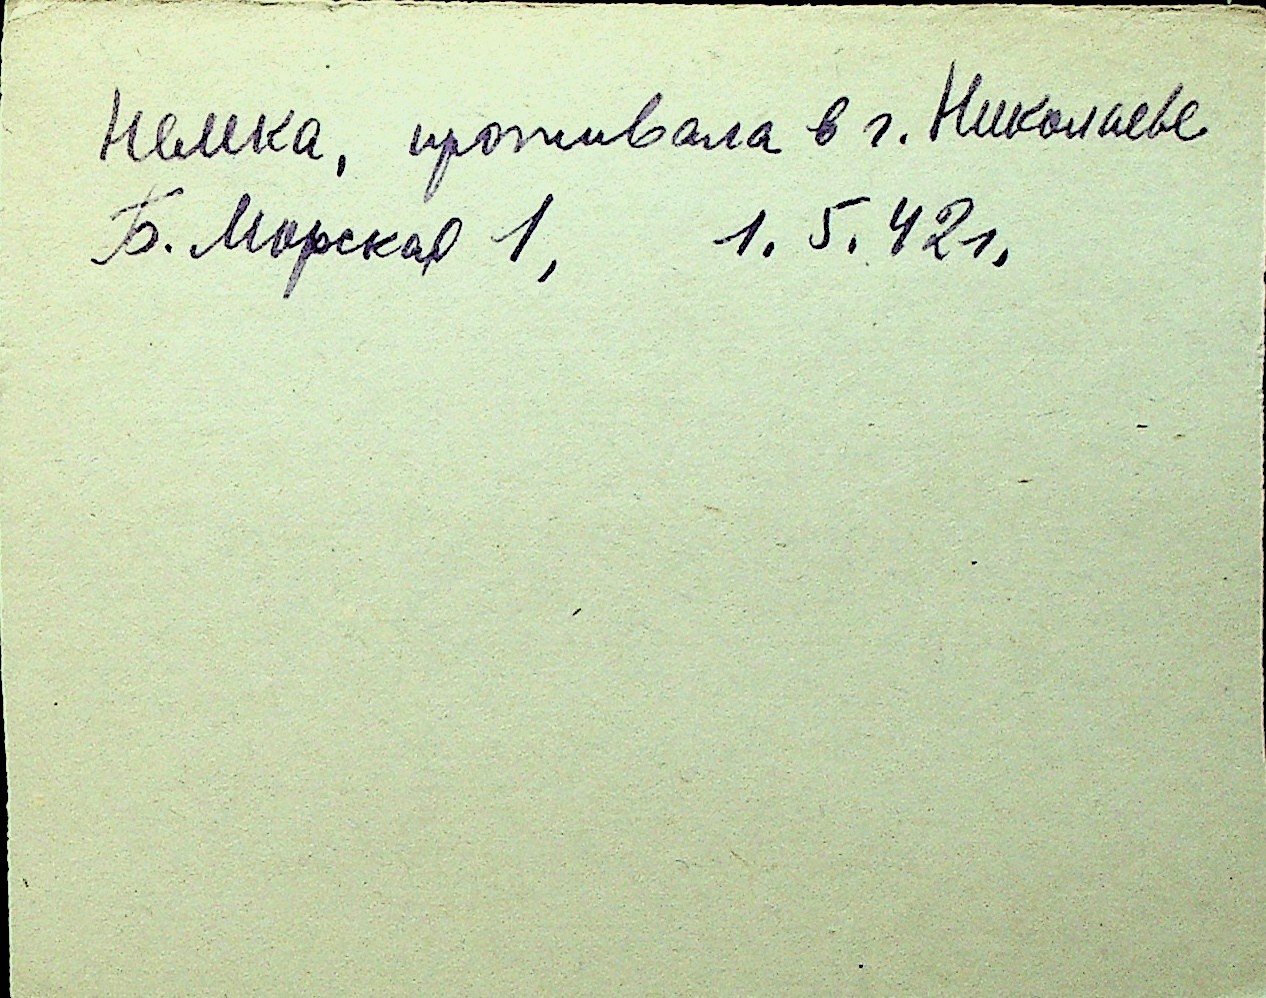 Немка, проживала в г. Николаеве
Б. Морская 1, 1.5.42г.